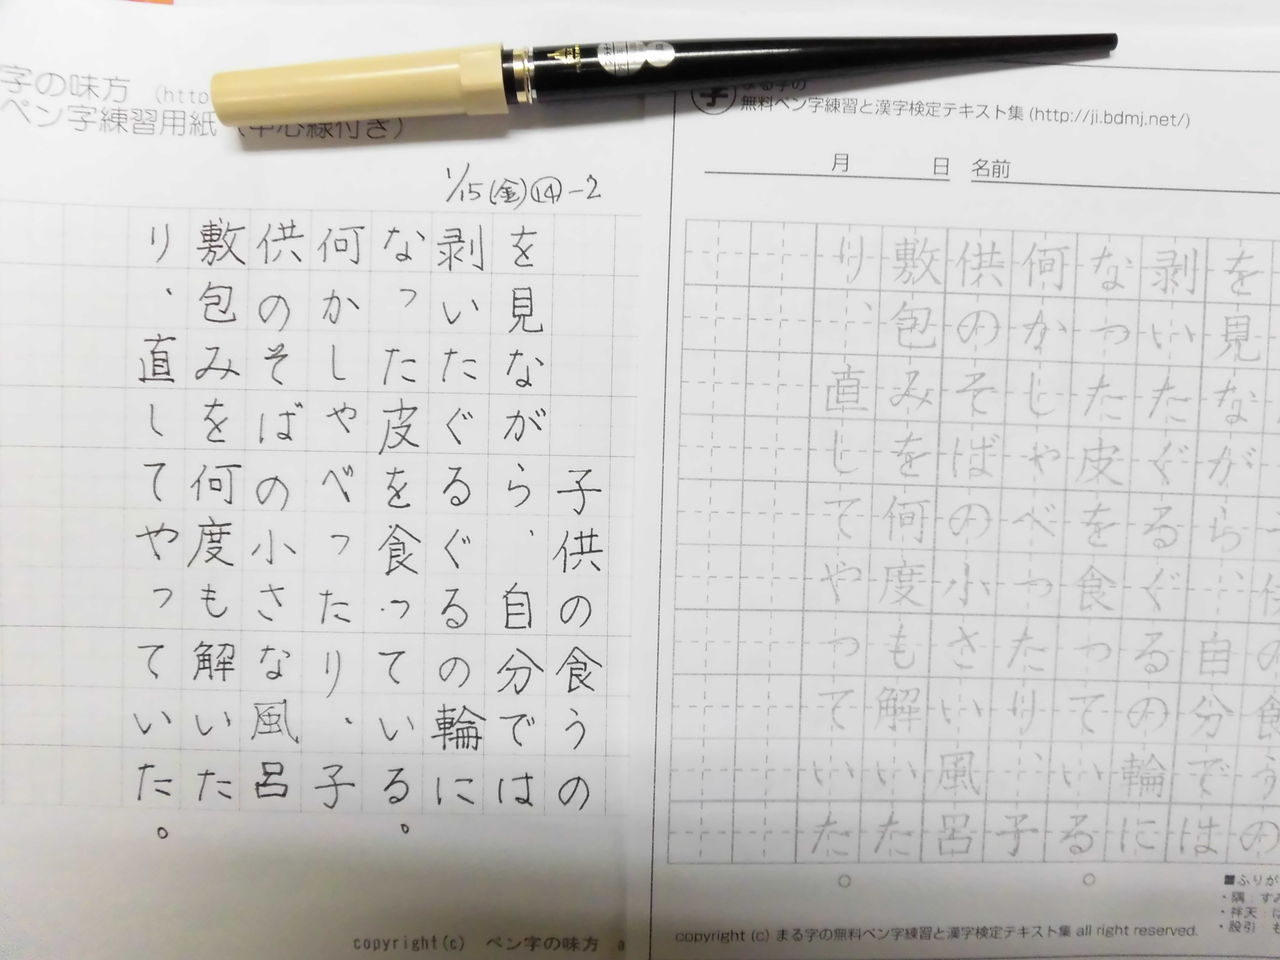 字の味方 (http
ペン字練習用紙 (中心線付き)
1/15(金)⑭-2
子供の食うの
を見ながら、自分では
剥いたぐるぐるの輪に
なった皮を食っている。
何かしゃべったり、子
供のそばの小さな風呂
敷包みを何度も解いた
り、直してやっていた。
copyright(c) ペン字の味方 a
字 まる字の
無料ペン字練習と漢字検定テキスト集 (http://ji.bdmj.net/)
月 日 名前
の食うの
を見ながら、自分では
剥いたぐるぐるの輪に
なった皮を食っている。
何かしゃべったり、子
供のそばの小さい風呂
敷包みを何度も解いた
り、直してやっていた。
■ふりが
・隅：すみ
・袢天：は
・股引 も
copyright (c) まる字の無料ペン字練習と漢字検定テキスト集 all right reserved.